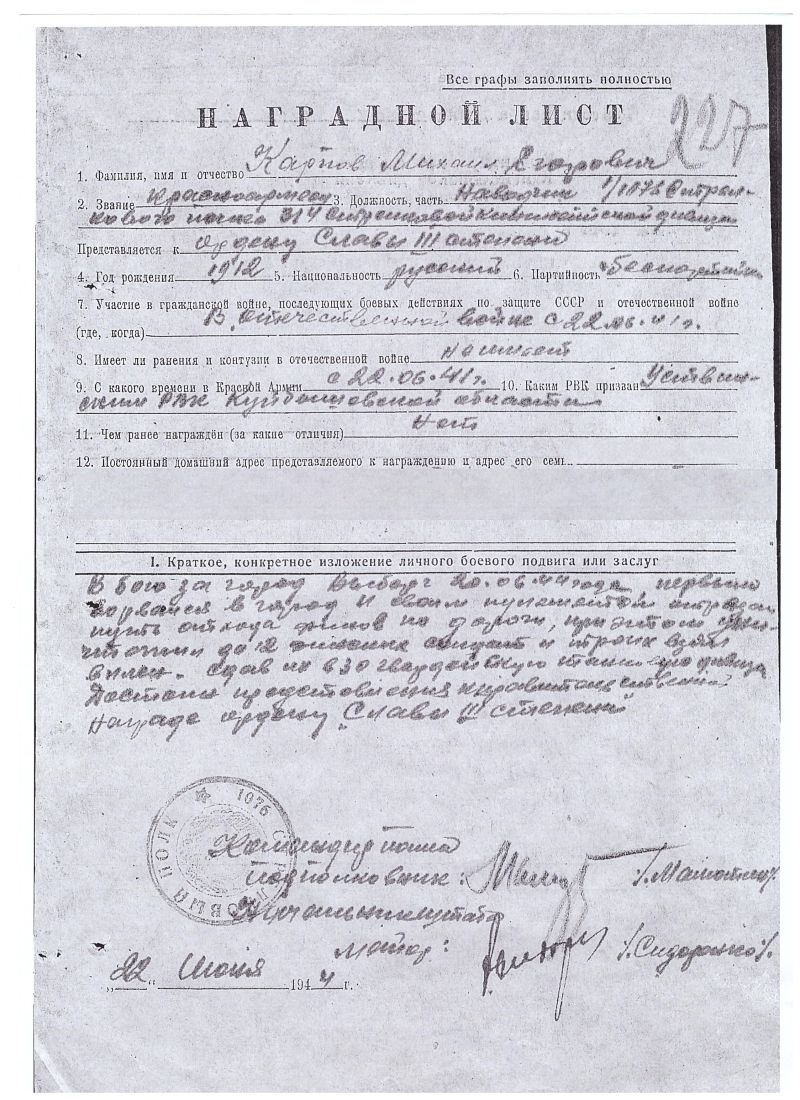 Все графы заполнять полностью
НАГРАДНОЙ ЛИСТ
227
1. Фамилия, имя и отчество Карпов Михаил Егорович
2. Звание красноармеец 3. Должность, часть Наводчик 1/1076 Стрел-
кового полка 314 Стрелковой Кингисеппской дивизии
Представляется к ордену Славы III степени
4. Год рождения 1912 5. Национальность русский 6. Партийность беспартийный
7. Участие в гражданской войне, последующих боевых действиях по защите СССР и отечественной войне
(где, когда) В Отечественной войне с 22.06.41г.
8. Имеет ли ранения и контузии в отечественной войне не имеет
9. С какого времени в Красной Армии с 22.06.41г. 10. Каким РВК призван
ским РВК Куйбышевской области
11. Чем ранее награждён (за какие отличия) Нет
12. Постоянный домашний адрес представляемого к награждению и адрес его семь
I. Краткое, конкретное изложение личного боевого подвига или заслуг
В бою за город Выборг 20.06.44 года, первым
ворвался в город и своим пулеметом отрезал
путь отхода финов по дороги, при этом уни-
чтожил до 12 финских солдат и троих взял
в плен. сдав их в 30 гвардейскую
Достоин представления к правительственной
награде ордену "Славы III степени"
1076 СТРЕЛКОВЫЙ ПОЛК
Командир полка
подполковник:
Начальник штаба
майор: /Сидоренко/.
"22" Июня 1944 г.